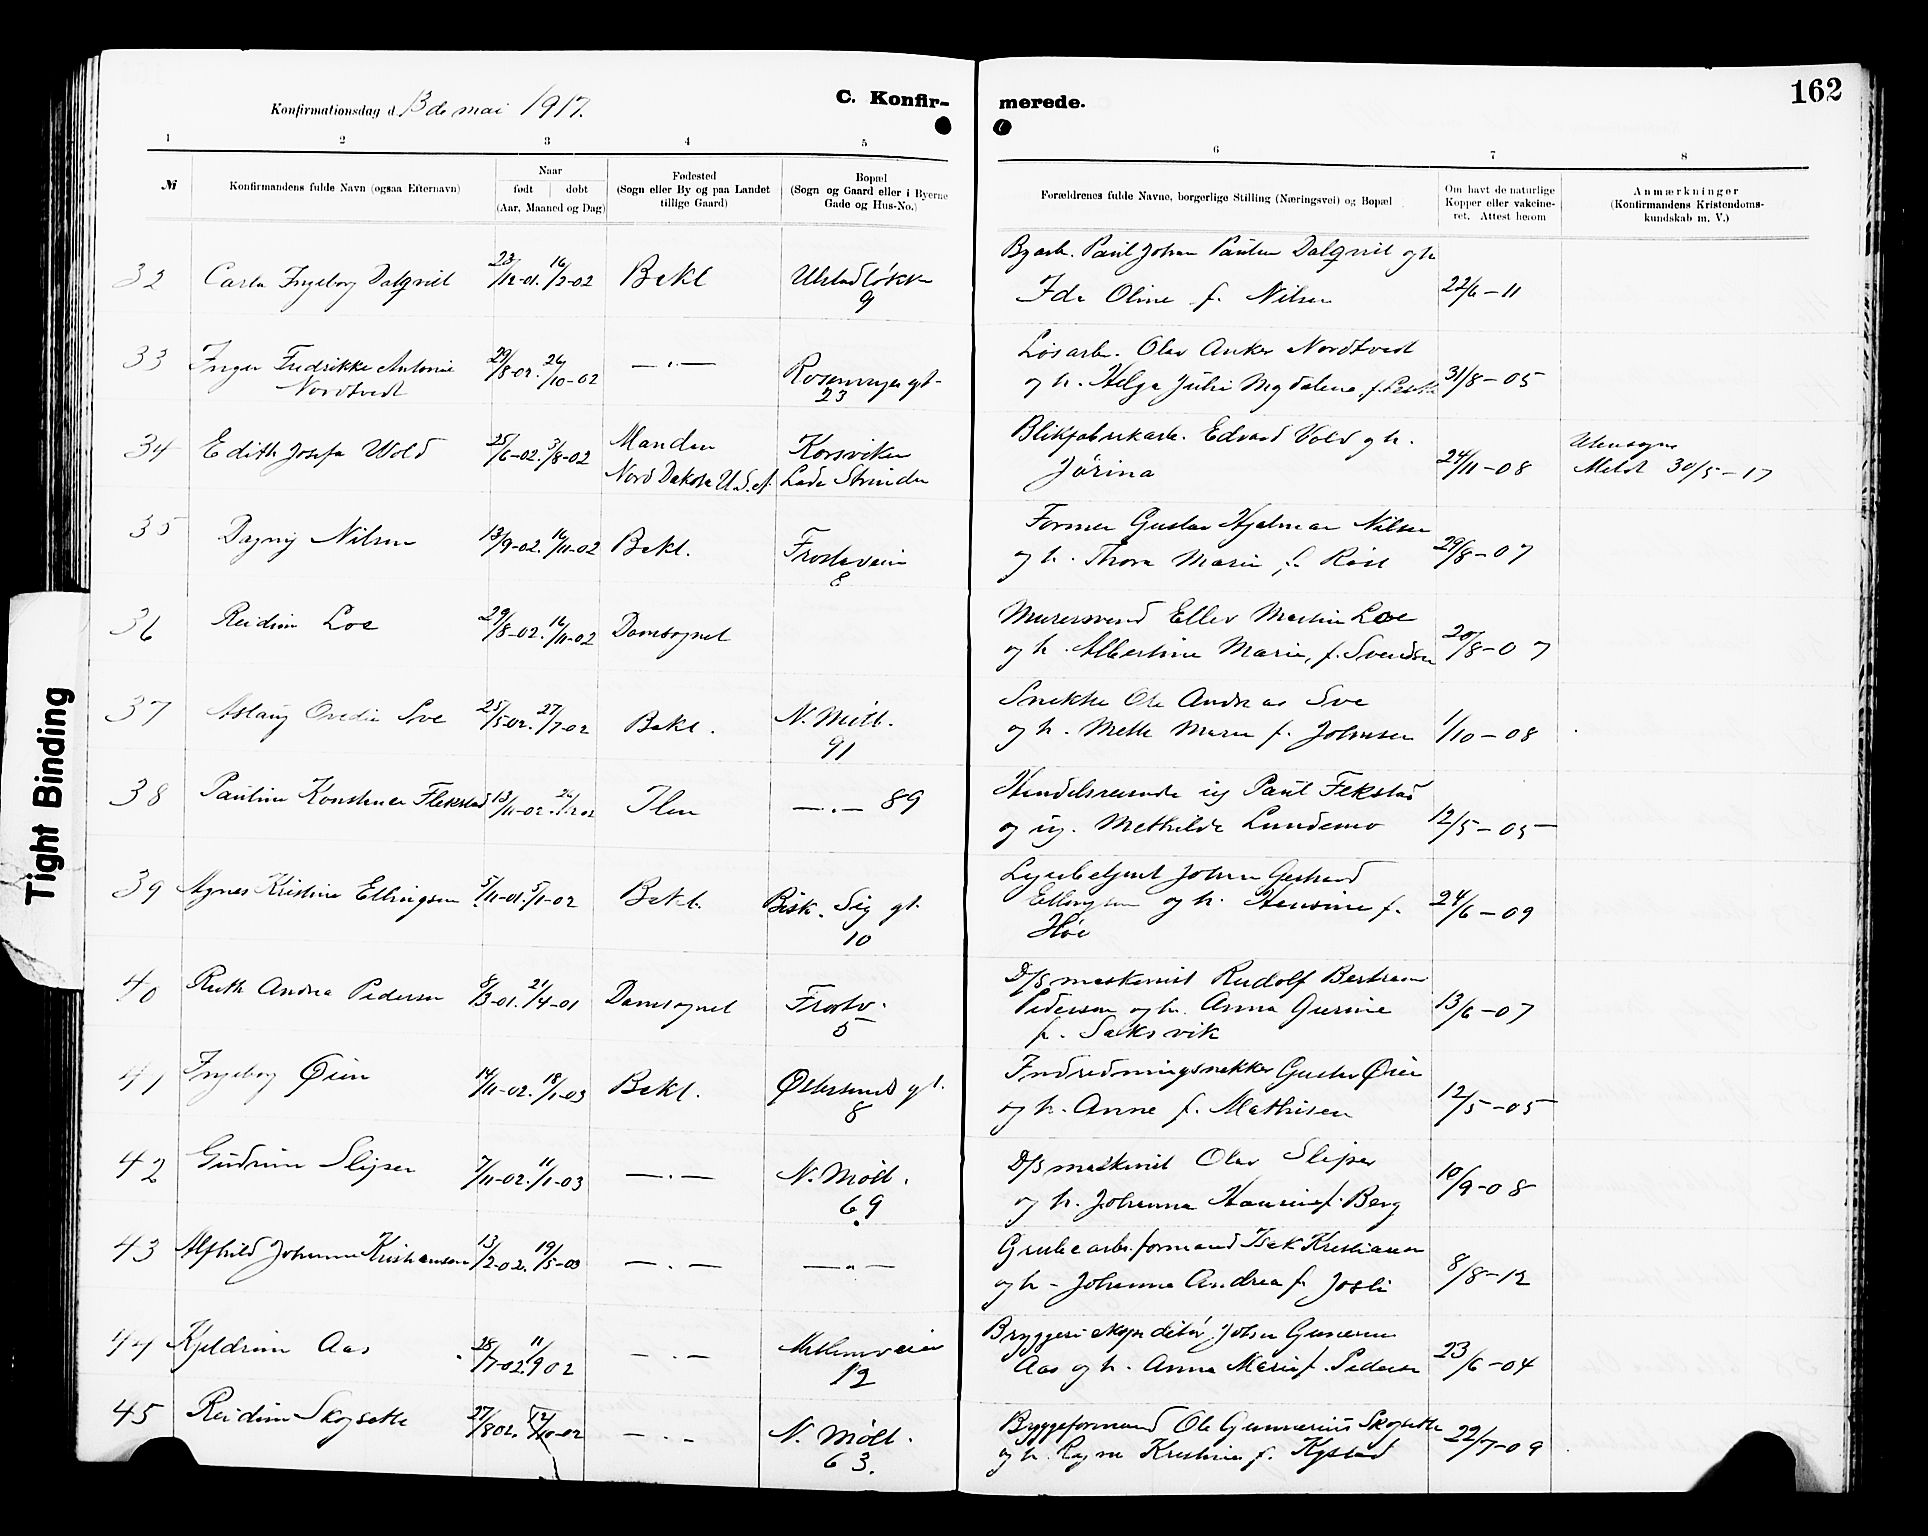 162
Konfirmationsdag d. 13de mai 1917.
C. Konfir-
merede.
1 2 3 4 5
6 7 8
№
Konfirmandens fulde Navn (ogsaa Efternavn)
Naar
født døbt
(Aar, Maaned og Dag)
Fødested
(Sogn eller By og paa Landet
tillige Gaard)
Bopæl
(Sogn og Gaard eller i Byerne
Gade og Hus-No.)
Forældrenes fulde Navne, borgerlige Stilling (Næringsvei) og Bopæl
Om havt de naturlige
Kopper eller vakcine-
ret. Attest herom
Anmærkninger
(Konfirmandens Kristendoms-
kundskab m. V.)
32 Carla Ingeborg Dalqvist 23/12-01. 16/2-02 Bakl Ulstadløkk
9
Byarb. Paul Johan Dalqvist og h
Ida Oline f. Nilsen 22/6-11
33 Inger Fredrikke Antonie
Nordtvedt 29/8-02. 26/10-02 —„— gt.
23
Løsarb. Olav Anker Nordtvedt
og h. Helga Julie Magdalena f. 31/8-05
34 Edith Josefa Wold 25/6-02. 3/8-02 Mandan
Nord Dakota U.S.A. Korsviken
Lade Strinden
Blikfabrikarb. Edvard Vold og h.
Jørina 24/11-08
Utensogns
Meldt 30/5-17
35 Dagny Nilsen 13/9-02. 16/11-02 Bakl. Frostaveien
8
Former Gustav Hjalmar Nilsen
og h. Thora Marie f. 29/8-07
36 Reidun Loe 29/8-02. 16/11-02 Domsognet
Murersvend Ellev Martin Loe
og h. Albertine Marie, f. Svendsen 20/8-07
37 Aslaug Sve 25/5-02. 27/7-02 Bakl. N. Møll.
91
Snekker Ole Andreas Sve
og h. Mette Marie f. Johnsen 1/10-08
38 Pauline Konstanse Flekstad 13/11-02. 26/12-02 Ilen —„— 89
Handelsreisende ug Paul Flekstad
og ug. Mathilde Lundemo 12/5-05
39 Agnes Kristine Ellingsen 5/11-01. 5/1-02 Bakl. Bisk. Sig gt.
10
Johan Gerhard
Ellingsen og h. Hansine f.
Høe 24/6-09
40 Ruth Andrea Pedersen 8/3-01. 21/4-01 Domsognet Frostv.
5
D/S maskinist Rudolf Bertram
Pedersen og h. Anna Gurine
f. Saksvik 13/6-07
41 Ingeborg Øien 14/11-02. 18/1-03 Bakl. Østersunds gt.
8
Indredningsnekker Gustav Øien
og h. Anne f. Mathisen 12/5-05
42 Gudrun Sliper 7/11-02. 11/1-03 —„— N. Møll.
69
D/S maskinist Olav Sliper
og h. Johanna f. Berg 10/9-08
43 Alfhild Johanne Kristiansen 13/2-02. 19/5-03 —„— —„—
Grubearb. formand Isak Kristiansen
og h. Johanna Andrea f. Josli 8/8-12
44 Kjeldrun Aas 28/7-02. 11/9 02 —„— 12
Bryggeri ekspeditør Johan Gunerius
Aas og h. Anna Marie f. Pedersen 23/6-04
45 Reidun Skogsette 27/8 02. 12/10-02 —„— N. Møll.
63.
Bryggeformand Ole Gunnerius Skogsette
og h. Ragna Kristine f. Kystad 22/7-09
Tight Binding